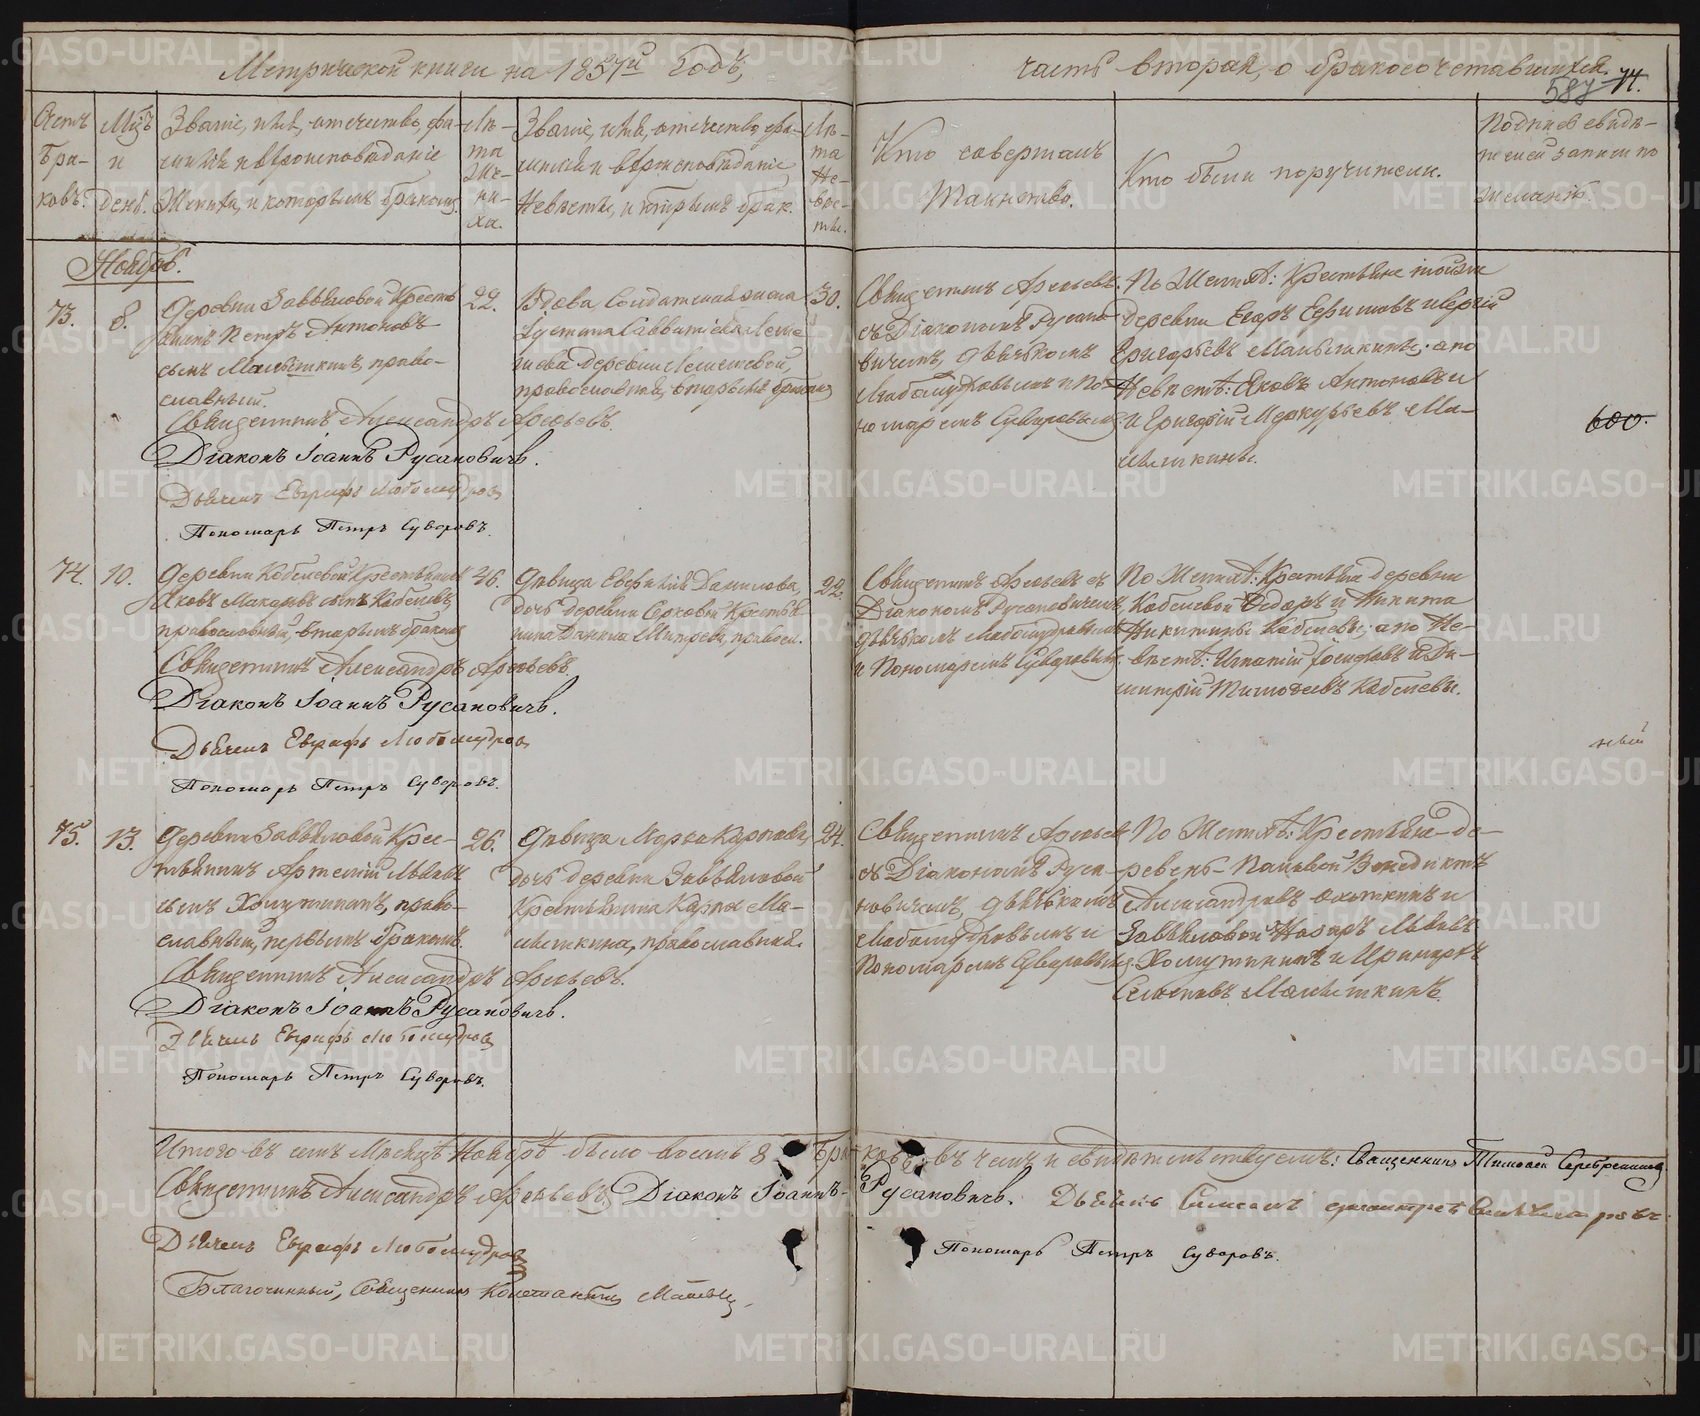 Метрической книги на 1857й годъ,
часть вторая, о бракосочетавшихся.
587 74.
Счетъ браковъ.
Мѣсяцъ и день.
Званіе, имя, отечество, фамилія и вѣроисповѣданіе Жениха, и которымъ бракомъ.
Лѣта Жениха.
Званіе, имя, отечество, фамилія и вѣроисповѣданіе Невѣсты, и которымъ брак.
Лѣта Невѣсты.
Кто совершалъ
Таинство.
Кто были поручители.
Подпись свидѣтелей записи по желанію.
Ноябрь.
73.
8.
Деревни Завьяловой Крестьянинъ Петръ Антоновъ
сынъ Малышкинъ, православный.
22.
Вдова Солдатская жена
деревни
православная, вторымъ бракомъ
30.
Священникъ Арефьевъ
съ Діакономъ Русановичемъ, дьячкомъ
Любомудровымъ и Пономаремъ Суворовымъ.
По Женихѣ: Крестьяне тойже
деревни Егоръ Ефимовъ и Сергій
Григорьевъ Малышкины; а по
Невѣстѣ: Яковъ Антоновъ и
Григорій Меркурьевъ Малышкины.
600.
Священникъ Александръ Арефьевъ.
Діаконъ Іоаннъ Русановичъ.
Дьячекъ Евграфъ Любомудровъ
Пономарь Петръ Суворовъ.
74.
10.
Деревни Кобелевой Крестьянинъ
Яковъ Макаровъ сынъ Кобелевъ,
православный, вторымъ бракомъ
46.
Дѣвица Евфимія Данилова,
дочь деревни Крестьянина Даніила православ.
22.
Священникъ Арефьевъ съ
Діакономъ Русановичемъ,
дьячкомъ Любомудровымъ
и Пономаремъ Суворовымъ.
По Женихѣ: Крестьяне деревни
Кобелевой Ѳедоръ и Никита
Никитины Кобелевы; а по Невѣстѣ: Игнатій Іосифовъ и Димитрій Тимофеевъ Кобелевы.
Священникъ Александръ Арефьевъ.
Діаконъ Іоаннъ Русановичъ.
Дьячекъ Евграфъ Любомудровъ
Пономарь Петръ Суворовъ.
75.
13.
Деревни Завьяловой Крестьянинъ Артемій Львовъ
сынъ Хомутининъ, православный, первымъ бракомъ.
26.
Дѣвица Марѳа Карпова,
дочь деревни Завьяловой
Крестьянина Карпа Малышкина, православная.
24.
Священникъ Арефьевъ
съ Діакономъ Русановичемъ, дьячкомъ
Любомудровымъ и
Пономаремъ Суворовымъ.
По Женихѣ: Крестьяне деревень Венедиктъ
Александровъ и
Завьяловой Назаръ Львовъ
Хомутининъ и
Малышкинъ.
Священникъ Александръ Арефьевъ.
Діаконъ Іоаннъ Русановичъ.
Дьячекъ Евграфъ Любомудровъ
Пономарь Петръ Суворовъ.
Итого въ семъ Мѣсяцѣ Ноябрѣ было восемь 8 браковъ, въ чемъ и свидѣтельствуемъ: Священникъ Тимофей Серебренниковъ
Священникъ Александръ Арефьевъ. Діаконъ Іоаннъ Русановичъ. Дьячекъ
Дьячекъ Евграфъ Любомудровъ
Пономарь Петръ Суворовъ.
Благочинный, Священникъ Константинъ
METRIKI.GASO-URAL.RU